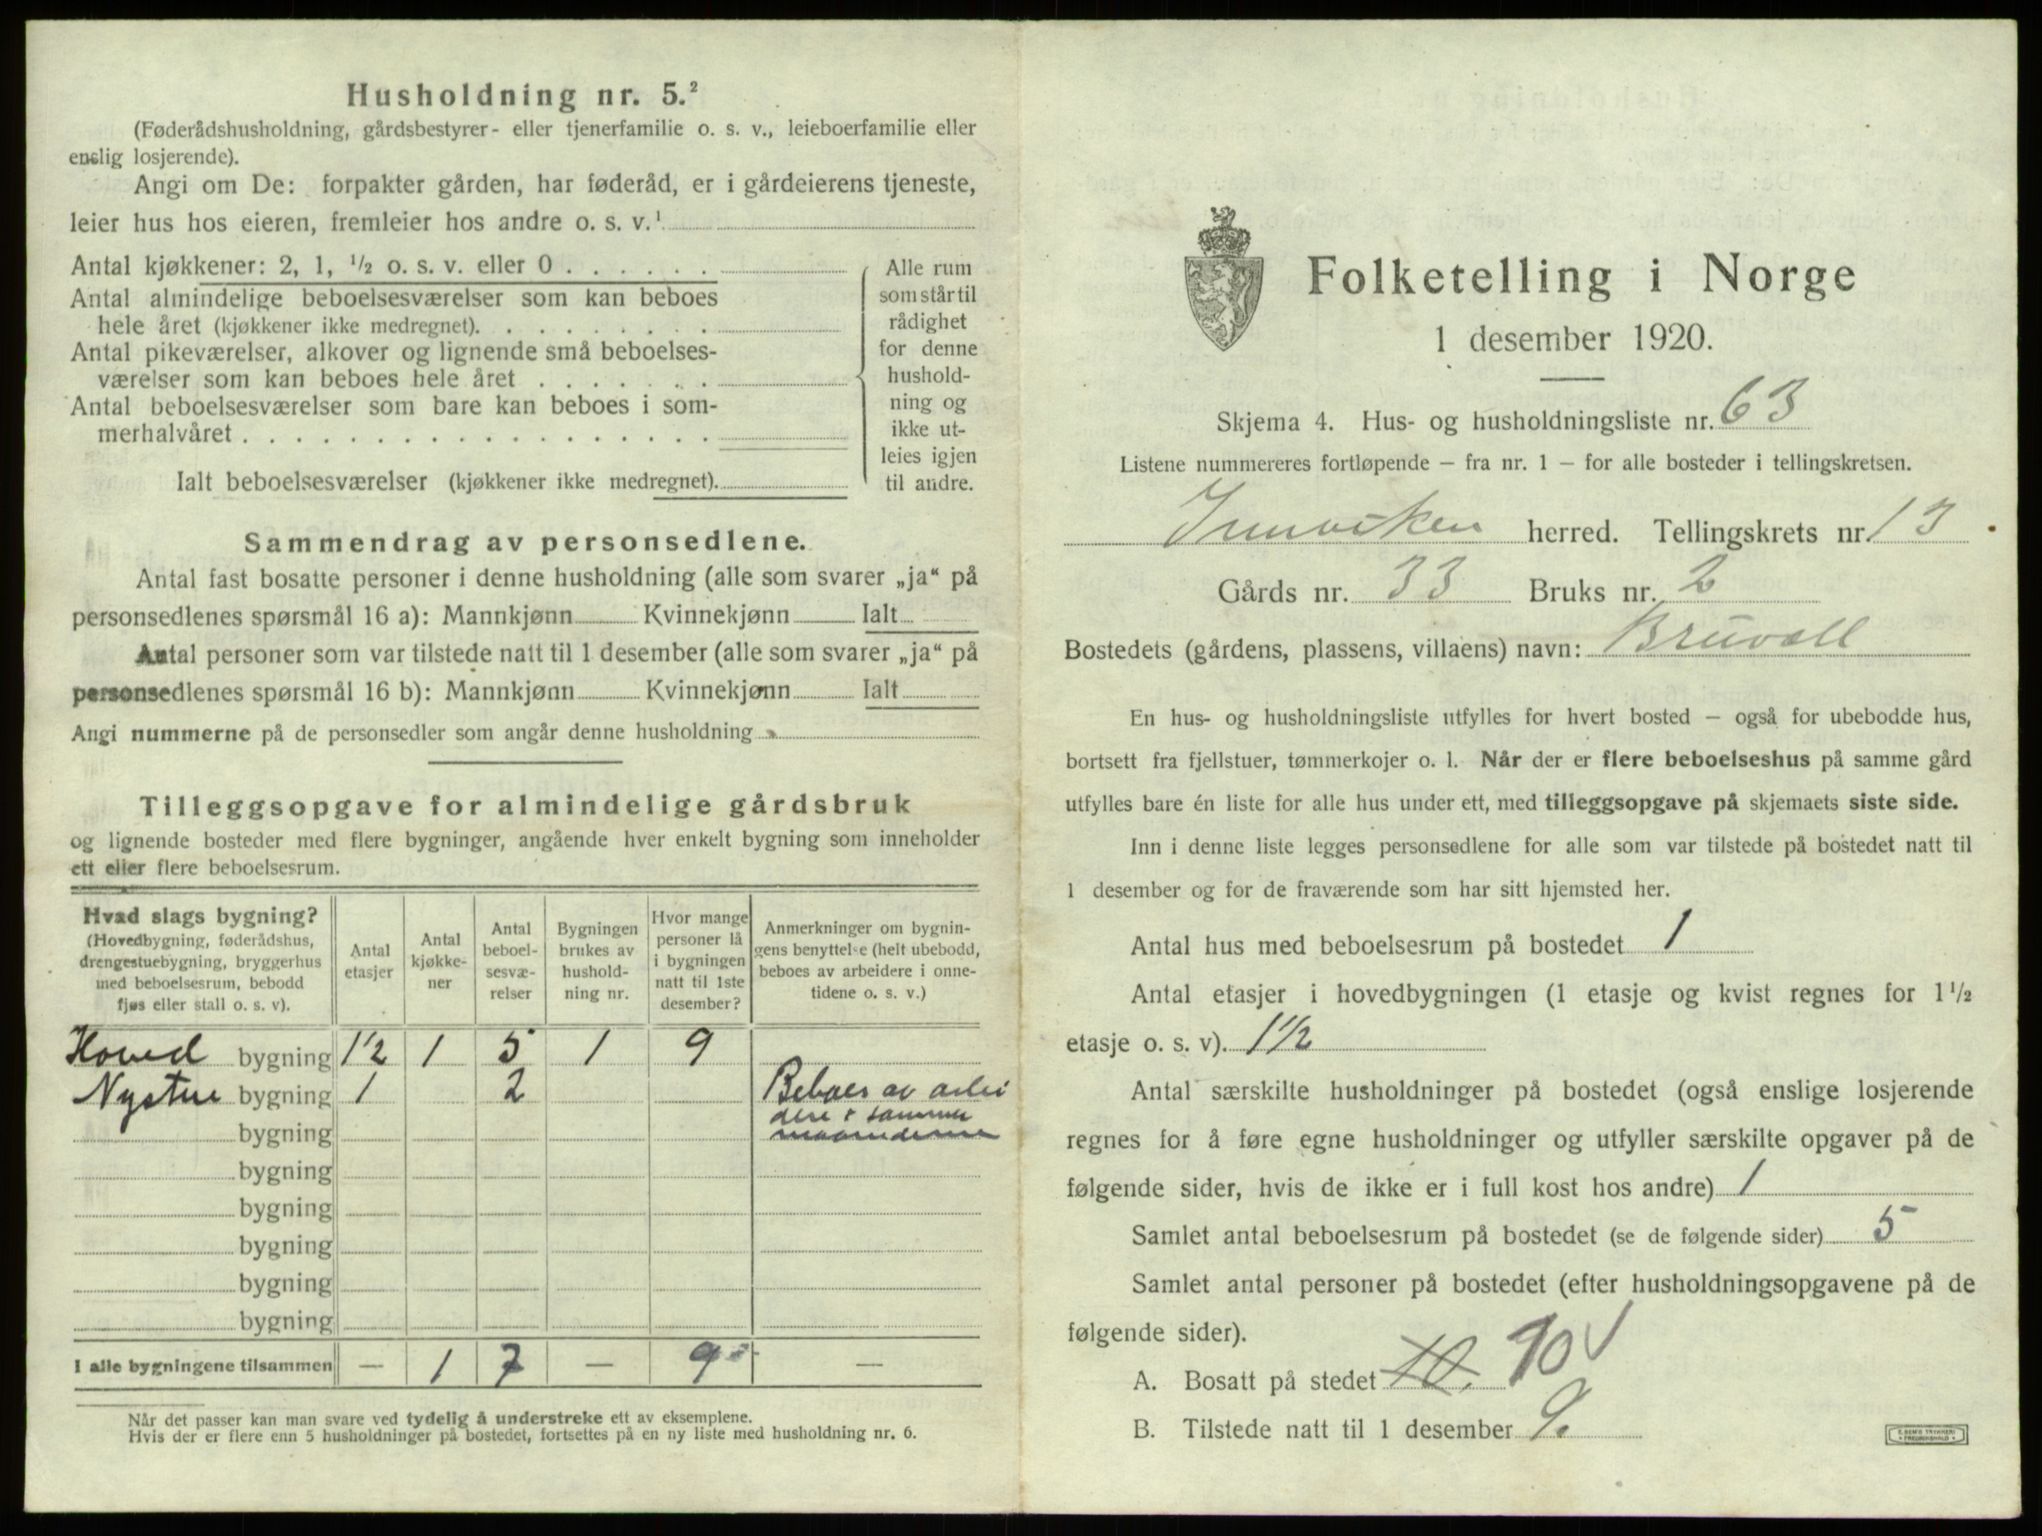 Husholdning nr. 5.²
(Føderådshusholdning, gårdsbestyrer- eller tjenerfamilie o. s. v., leieboerfamilie eller
enslig losjerende).
Angi om De: forpakter gården, har føderåd, er i gårdeierens tjeneste,
leier hus hos eieren, fremleier hos andre o. s. v.¹
Antal kjøkkener: 2, 1, ½ o. s. v. eller 0 . . . . . .
Antal almindelige beboelsesværelser som kan beboes
hele året (kjøkkener ikke medregnet). . . . . . . . .
Antal pikeværelser, alkover og lignende små beboelses-
værelser som kan beboes hele året . . . . . . .
Antal beboelsesværelser som bare kan beboes i som-
merhalvåret . . . . . . . . . . . . . . . . . .
Alle rum
som står til
rådighet
for denne
hushold-
ning og
ikke ut-
leies igjen
til andre.
Ialt beboelsesværelser (kjøkkener ikke medregnet).
Sammendrag av personsedlene.
Antal fast bosatte personer i denne husholdning (alle som svarer „ja“ på
personsedlenes spørsmål 16 a): Mannkjønn Kvinnekjønn Ialt
Antal personer som var tilstede natt til 1 desember (alle som svarer „ja“ på
personsedlenes spørsmål 16 b): Mannkjønn Kvinnekjønn Ialt
Angi nummerne på de personsedler som angår denne husholdning
Tilleggsopgave for almindelige gårdsbruk
og lignende bosteder med flere bygninger, angående hver enkelt bygning som inneholder
ett eller flere beboelsesrum.
Hvad slags bygning?
(Hovedbygning, føderådshus,
drengestuebygning, bryggerhus
med beboelsesrum, bebodd
fjøs eller stall o. s. v).
Antal
etasjer
Antal
kjøkke-
ner
Antal
beboel-
sesvæ-
relser
Bygningen
brukes av
hushold-
ning nr.
Hvor mange
personer lå
i bygningen
natt til 1ste
desember?
Anmerkninger om bygnin-
gens benyttelse (helt ubebodd,
beboes av arbeidere i onne-
tidene o. s. v.)
Hoved bygning 1½ 1 5 1 9
Nystue bygning 1 2 Beboes av arbei
dere i sommer
bygning maanederne
bygning
bygning
bygning
bygning
bygning
I alle bygningene tilsammen — 1 7 — 9 —
Når det passer kan man svare ved tydelig å understreke ett av eksemplene.
Hvis der er flere enn 5 husholdninger på bostedet, fortsettes på en ny liste med husholdning nr. 6.
Folketelling i Norge
1 desember 1920.
Skjema 4. Hus- og husholdningsliste nr. 63
Listene nummereres fortløpende — fra nr. 1 — for alle bosteder i tellingskretsen.
Innviken herred. Tellingskrets nr. 13
Gårds nr. 33 Bruks nr. 2
Bostedets (gårdens, plassens, villaens) navn: Bruvoll
En hus- og husholdningsliste utfylles for hvert bosted — også for ubebodde hus,
bortsett fra fjellstuer, tømmerkojer o. l. Når der er flere beboelseshus på samme gård
utfylles bare én liste for alle hus under ett, med tilleggsopgave på skjemaets siste side.
Inn i denne liste legges personsedlene for alle som var tilstede på bostedet natt til
1 desember og for de fraværende som har sitt hjemsted her.
Antal hus med beboelsesrum på bostedet 1
Antal etasjer i hovedbygningen (1 etasje og kvist regnes for 1½
etasje o. s. v). 1½
Antal særskilte husholdninger på bostedet (også enslige losjerende
regnes for å føre egne husholdninger og utfyller særskilte opgaver på de
følgende sider, hvis de ikke er i full kost hos andre) 1
Samlet antal beboelsesrum på bostedet (se de følgende sider) 5
Samlet antal personer på bostedet (efter husholdningsopgavene på de
følgende sider).
A. Bosatt på stedet 10. 10 √
B. Tilstede natt til 1 desember 9.